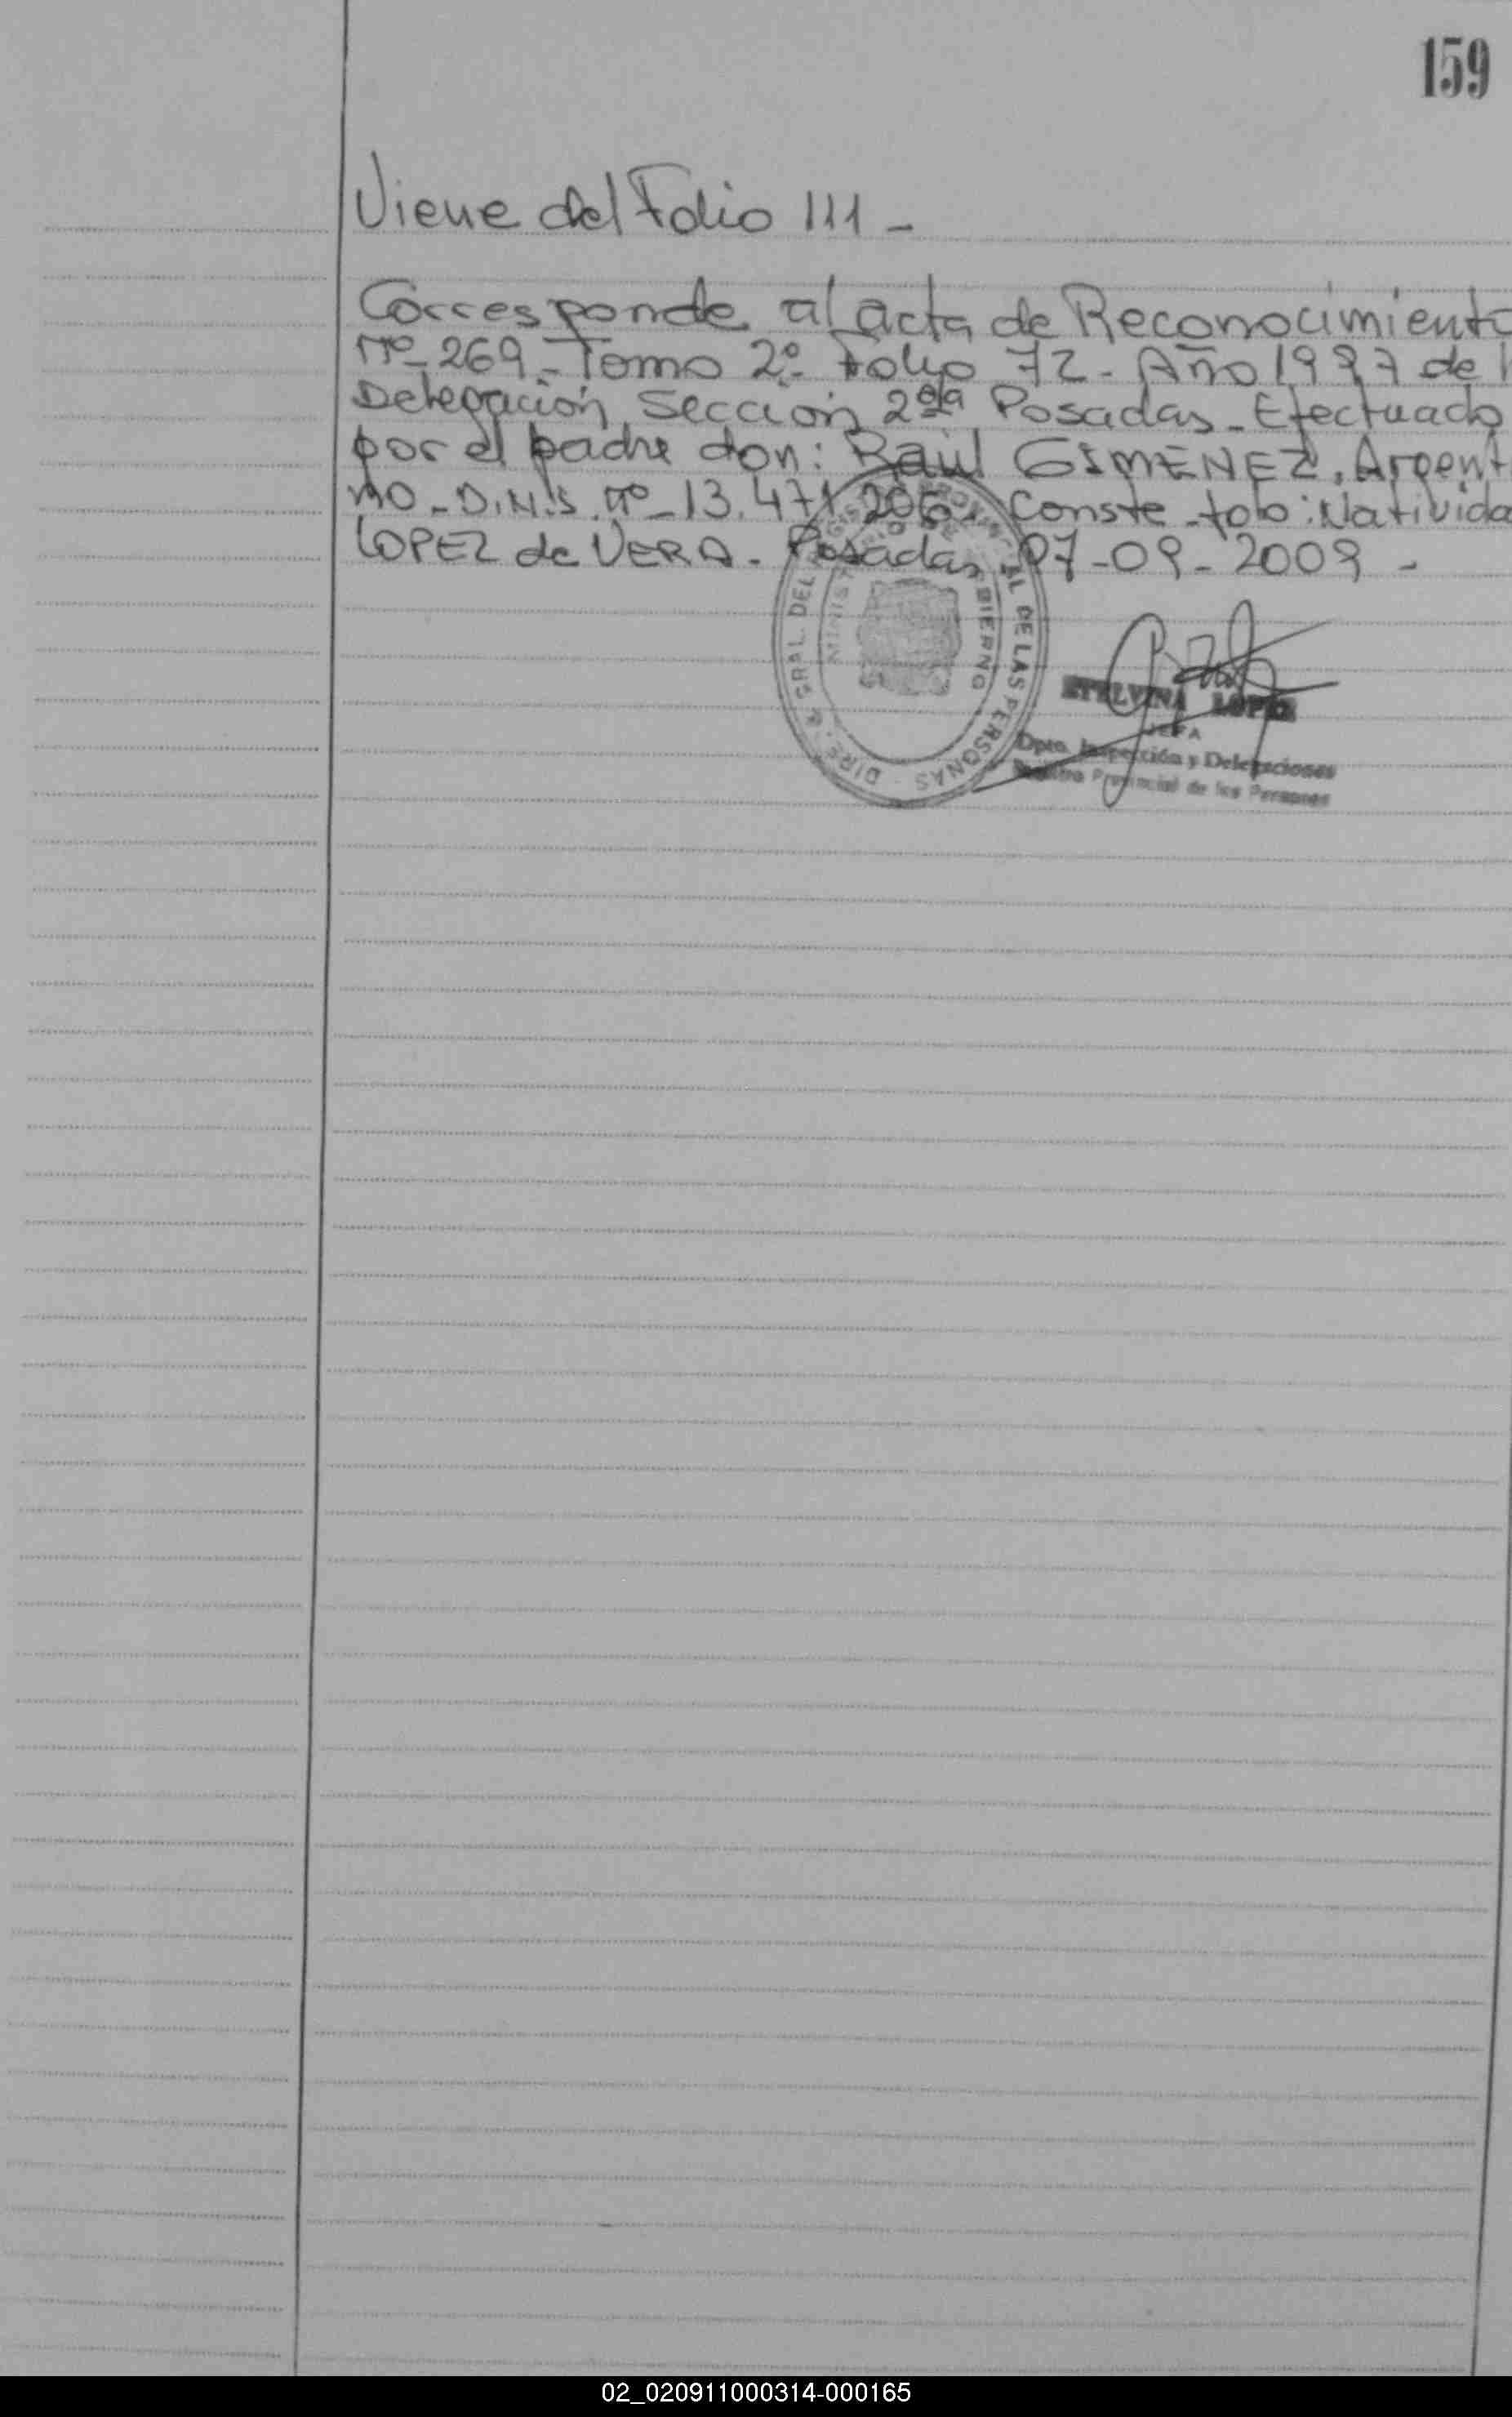 159
Viene del Folio 111 -
Corresponde al acta de Reconocimiento
Nº- 269 - Tomo 2º- Folio 72 - Año 1997 de l
Delegación Sección 2da Posadas - Efectuado
por el padre don: Raúl GIMENEZ, Argenti
no - D.N.I. Nº - 13.471.206 - Conste - fdo: Natividad
LOPEZ de VERA - Posadas 07-09-2009 -
DIREC. GRAL. DEL REGISTRO PROVINCIAL DE LAS PERSONAS
MINISTERIO DE GOBIERNO
ETELVINA LOPEZ
JEFA
Dpto. Inspección y Delegaciones
Registro Provincial de las Personas
02_020911000314-000165